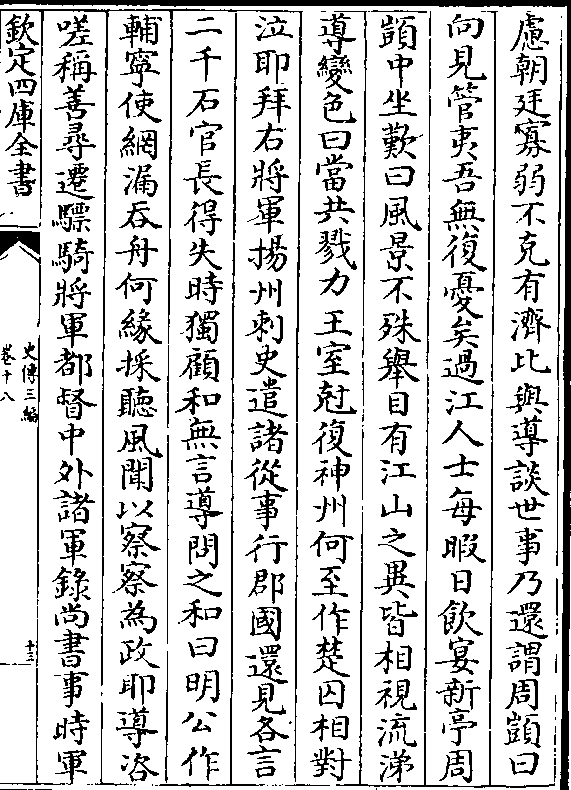 慮朝廷寡弱不克有濟比與導談世事乃還謂周顗曰
向見管夷吾無復憂矣過江人士每暇日飲宴新亭周
顗中坐歎曰風景不殊舉目有江山之異皆相視流涕
導變色曰當共戮力王室尅復神州何至作楚囚相對
泣耶拜右將軍揚州刺史遣諸從事行郡國還見各言
二千石官長得失時獨顧和無言導問之和曰明公作
輔寧使網漏吞舟何緣採聽風聞以察察為政耶導咨
嗟稱善尋遷驃騎將軍都督中外諸軍錄尚書事時軍
欽定四庫全書
史傳三編
卷十八
十三